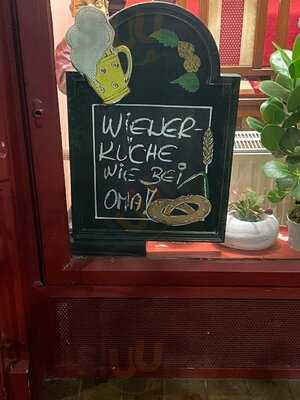 WIENER-
KÜCHE
WIE BEI
OMA!